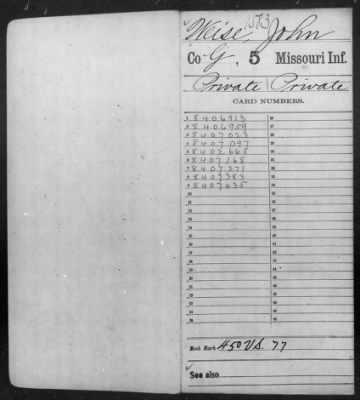 573
Weise, John
Co G, 5 Missouri Inf.
Private | Private
CARD NUMBERS.
1 8406913 26
2 8406959 27
3 8407023 28
4 8407097 29
5 8402665 30
6 8407168 31
7 8407271 32
8 8407383 33
9 8407435 34
10 35
11 36
12 37
13 38
14 39
15 40
16 41
17 42
18 43
19 44
20 45
21 46
22 47
23 48
24 49
25 50
Book Mark 450 V.S. 77
See also